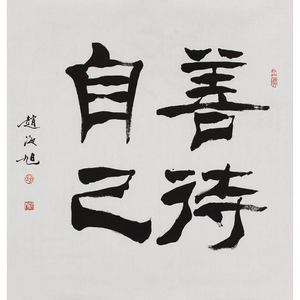 善待
自己
趙海旭